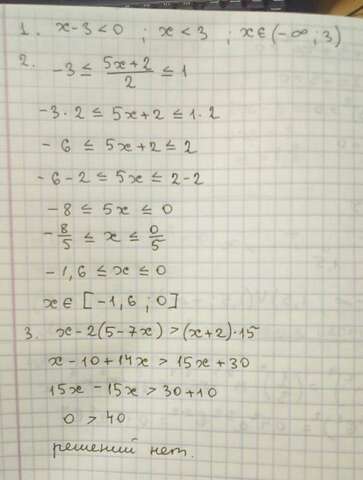 1. x-3<0 ; x<3 ; x∈(-∞;3)
2. -3 ≤ (5x+2)/2 ≤ 1
-3·2 ≤ 5x+2 ≤ 1·2
-6 ≤ 5x+2 ≤ 2
-6-2 ≤ 5x ≤ 2-2
-8 ≤ 5x ≤ 0
-8/5 ≤ x ≤ 0/5
-1,6 ≤ x ≤ 0
x∈[-1,6 ; 0]
3. x-2(5-7x) > (x+2)·15
x-10+14x > 15x+30
15x-15x > 30+10
0 > 40
решений нет.